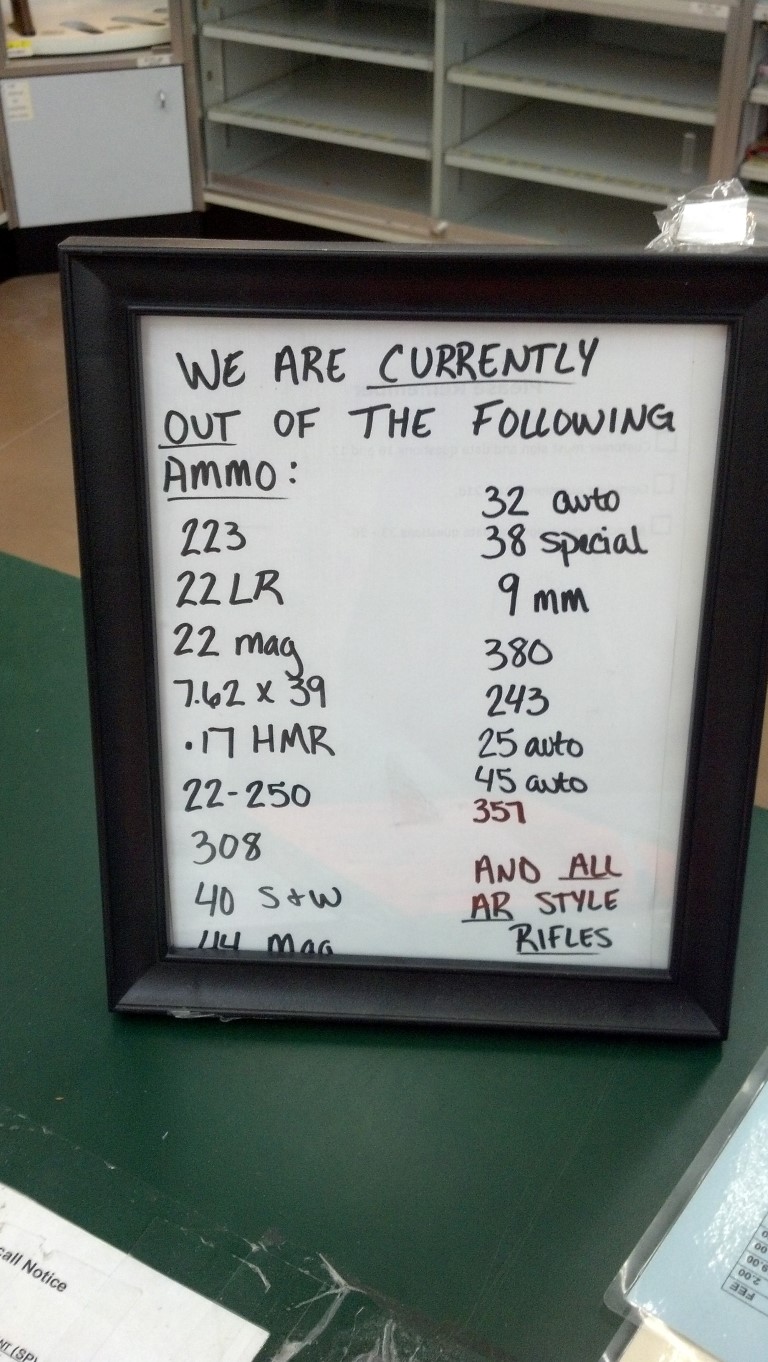 WE ARE CURRENTLY
OUT OF THE FOLLOWING
AMMO:
223
22 LR
22 mag
7.62 x 39
.17 HMR
22-250
308
40 S+W
44 mag
32 auto
38 special
9 mm
380
243
25 auto
45 auto
357
AND ALL
AR STYLE
RIFLES
call Notice
FEE
2.00